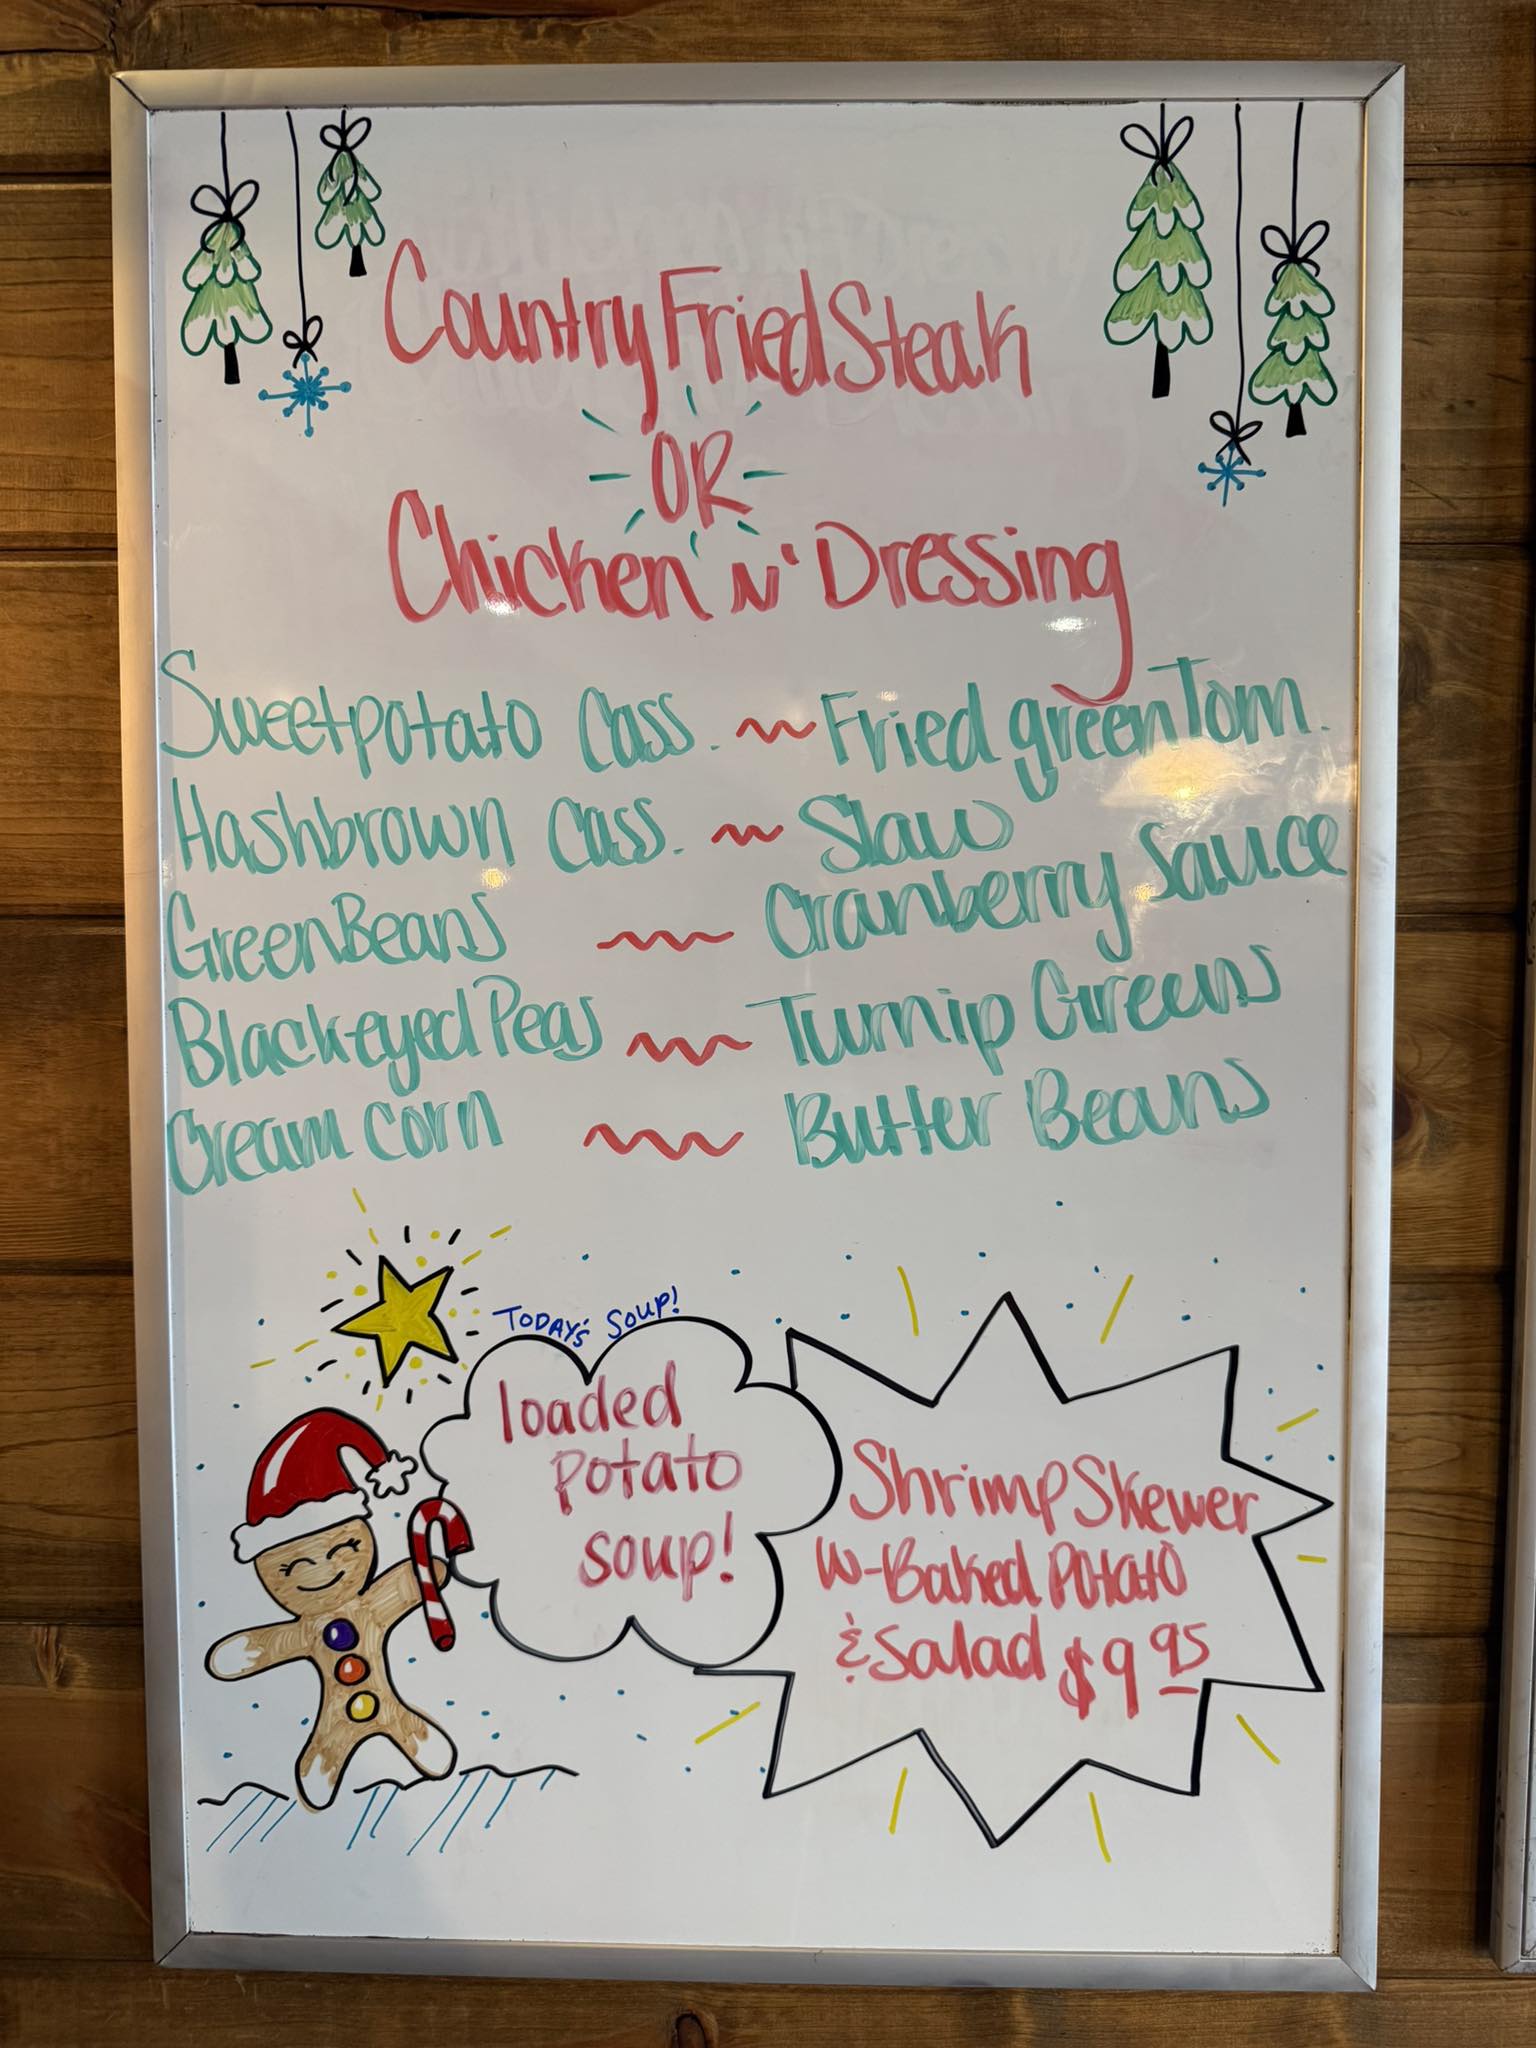 Country Fried Steak
OR
Chicken 'N' Dressing
Sweetpotato Cass. ~ Fried green Tom.
Hashbrown Cass. ~ Slaw
Green Beans ~ Cranberry Sauce
Blackeyed Peas ~ Turnip Greens
Cream Corn ~ Butter Beans
TODAY'S SOUP!
loaded
potato
soup!
Shrimp Skewer
W-Baked Potato
& Salad $9.95